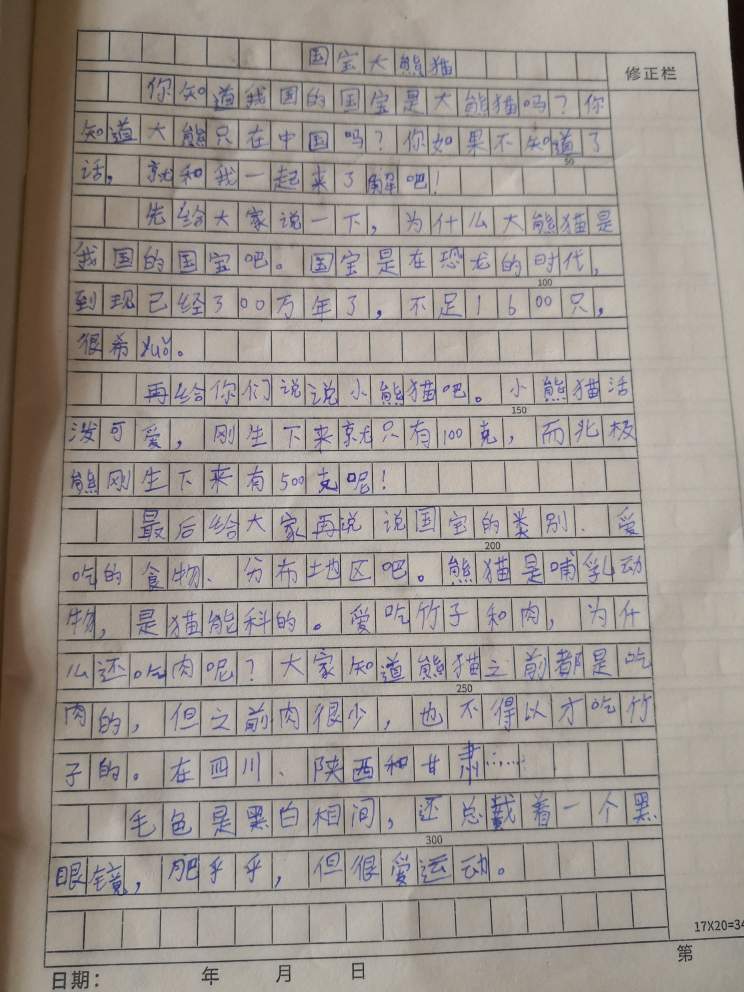 国宝大熊猫
修正栏
你知道我国的国宝是大熊猫吗?你
知道大熊只在中国吗?你如果不知道了
50
话,就和我一起来了解吧!
先给大家说一下,为什么大熊猫是
我国的国宝吧。国宝是在恐龙的时代,
100
到现已经300万年了,不足1600只,
很希xuǒ。
再给你们说说小熊猫吧。小熊猫活
150
泼可爱,刚生下来就只有100克,而北极
熊刚生下来有500克呢!
最后给大家再说说国宝的类别、爱
200
吃的食物、分布地区吧。熊猫是哺乳动
物,是猫能科的。爱吃竹子和肉,为什
么还吃肉呢?大家知道熊猫之前都是吃
250
肉的,但之前肉很少,也不得以才吃竹
子的。在四川、陕西和甘肃……
毛色是黑白相间,还总戴着一个黑
300
眼镜,肥乎乎,但很爱运动。
17X20=34
日期: 年 月 日 第